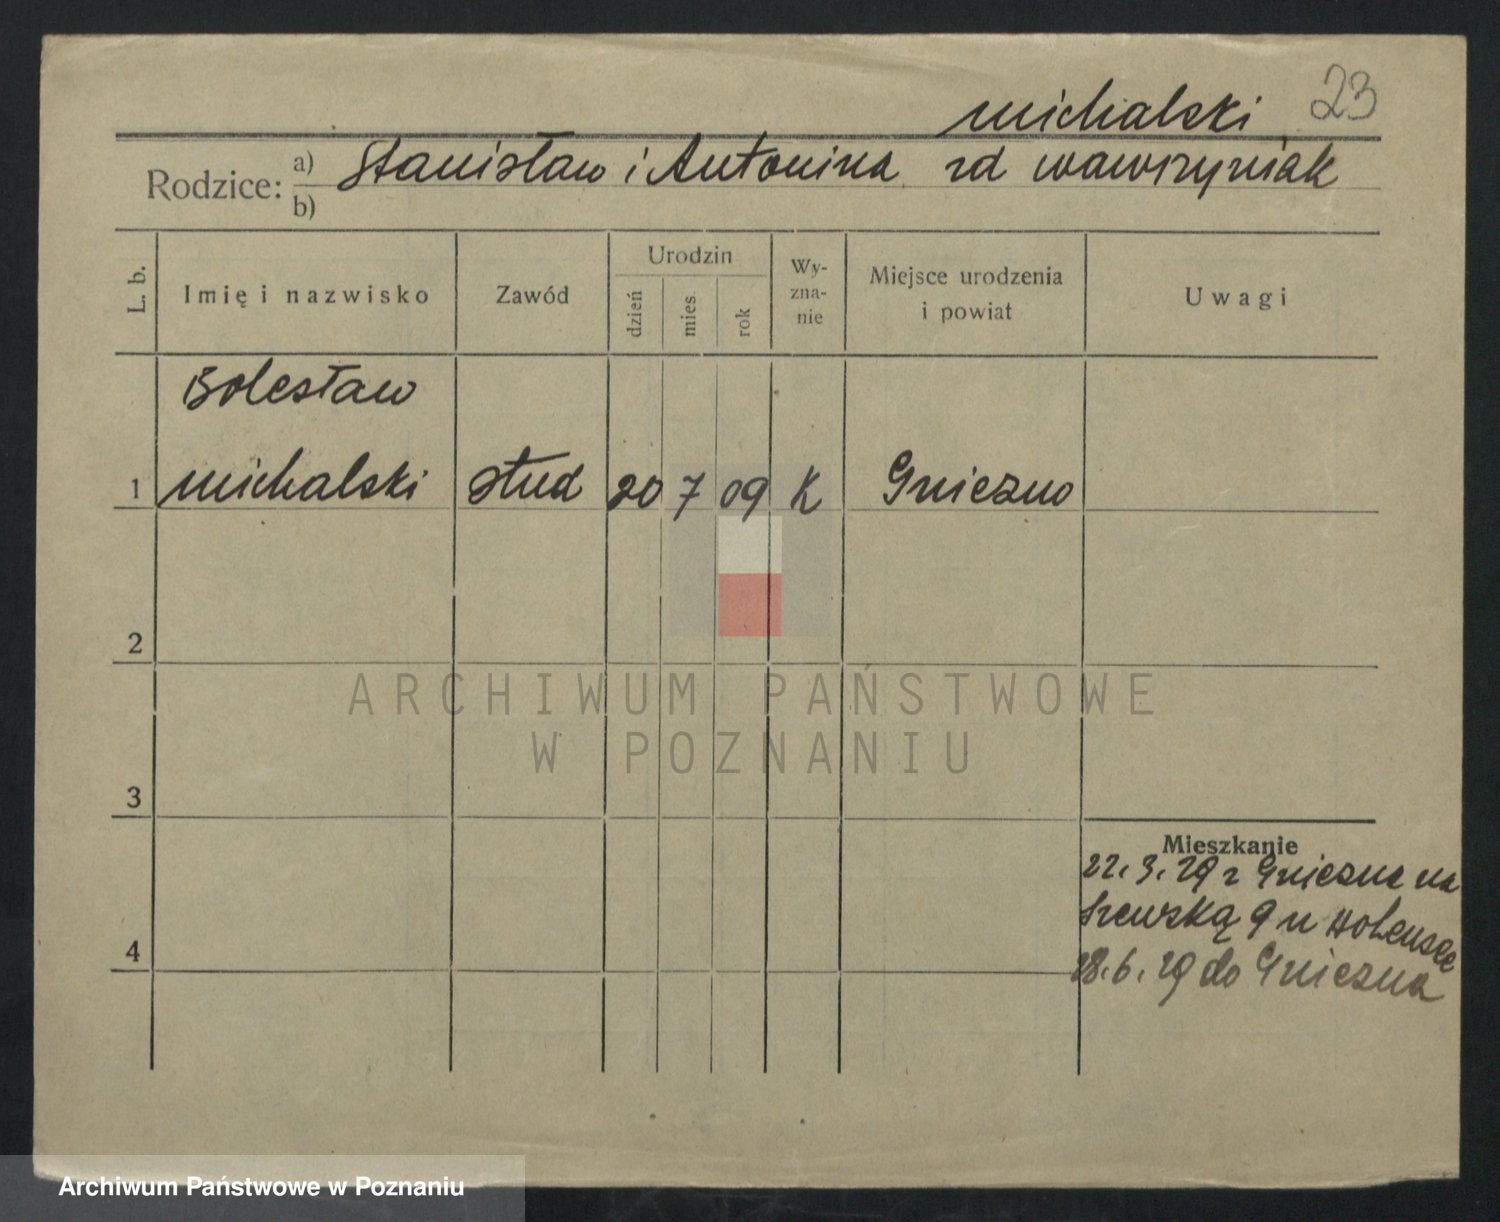 michalski 23
Rodzice: a) Stanisław i Antonina zd wawrzyniak
b)
L. b. Imię i nazwisko Zawód Urodzin dzień mies. rok Wyznanie Miejsce urodzenia i powiat Uwagi
Bolesław
1 michalski stud 20 7 09 K Gniezno
2
ARCHIWUM PAŃSTWOWE
W POZNANIU
3
Mieszkanie
22.3.29 z Gniezna na
Szewską 9 u Hohensee
4
28.6.29 do Gniezna
Archiwum Państwowe w Poznaniu